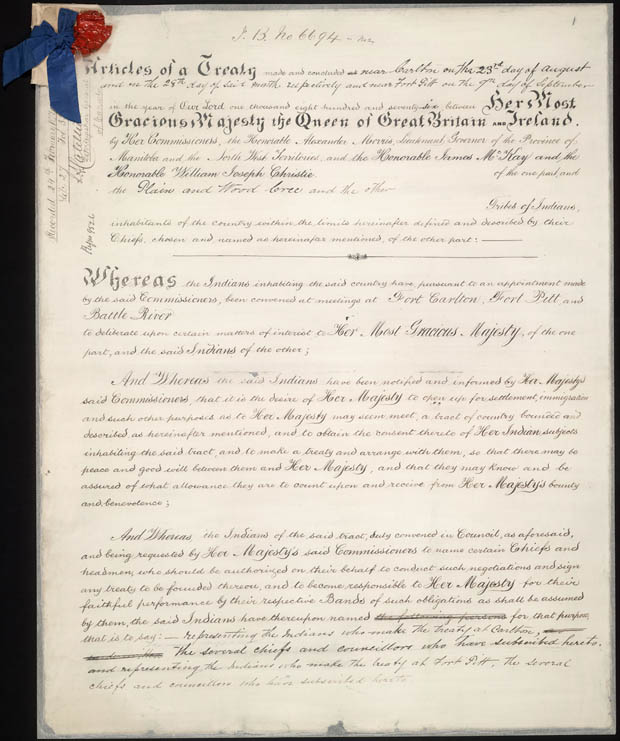 I. B. No 6694
1
Articles of a Treaty made and concluded near Carlton on the 23rd day of August
and on the 28th day of said month respectively and near Fort Pitt on the 9th day of September
in the year of Our Lord one thousand eight hundred and seventy-six between Her Most
Gracious Majesty the Queen of Great Britain and Ireland.
by Her Commissioners, the Honorable Alexander Morris, Lieutenant Governor of the Province of
Manitoba and the North West Territories, and the Honorable James McKay and the
Honorable William Joseph Christie of the one part, and
the Plain and Wood Cree and the other
Tribes of Indians,
inhabitants of the country within the limits hereinafter defined and described by their
Chiefs, chosen and named as hereinafter mentioned, of the other part: —
Whereas the Indians inhabiting the said country have, pursuant to an appointment made
by the said Commissioners, been convened at meetings at Fort Carlton, Fort Pitt and
Battle River
to deliberate upon certain matters of interest to Her Most Gracious Majesty, of the one
part, and the said Indians of the other;
And Whereas the said Indians have been notified and informed by Her Majesty's
said Commissioners, that it is the desire of Her Majesty to open up for settlement, immigration
and such other purposes as to Her Majesty may seem meet, a tract of country bounded and
described as hereinafter mentioned, and to obtain the consent thereto of Her Indian subjects
inhabiting the said tract, and to make a treaty and arrange with them, so that there may be
peace and good will between them and Her Majesty, and that they may know and be
assured of what allowance they are to count upon and receive from Her Majesty's bounty
and benevolence;
And Whereas, the Indians of the said tract, duly convened in Council, as aforesaid,
and being requested by Her Majesty's said Commissioners to name certain Chiefs and
headmen, who should be authorized on their behalf to conduct such negotiations and sign
any treaty to be founded thereon, and to become responsible to Her Majesty for their
faithful performance by their respective Bands of such obligations as shall be assumed
by them, the said Indians have thereupon named the following persons for that purpose,
that is to say: — representing the Indians who make the treaty at Carlton,
The several chiefs and councillors who have subscribed hereto,
and representing the Indians who make the treaty at Fort Pitt, the several
chiefs and councillors who have subscribed hereto